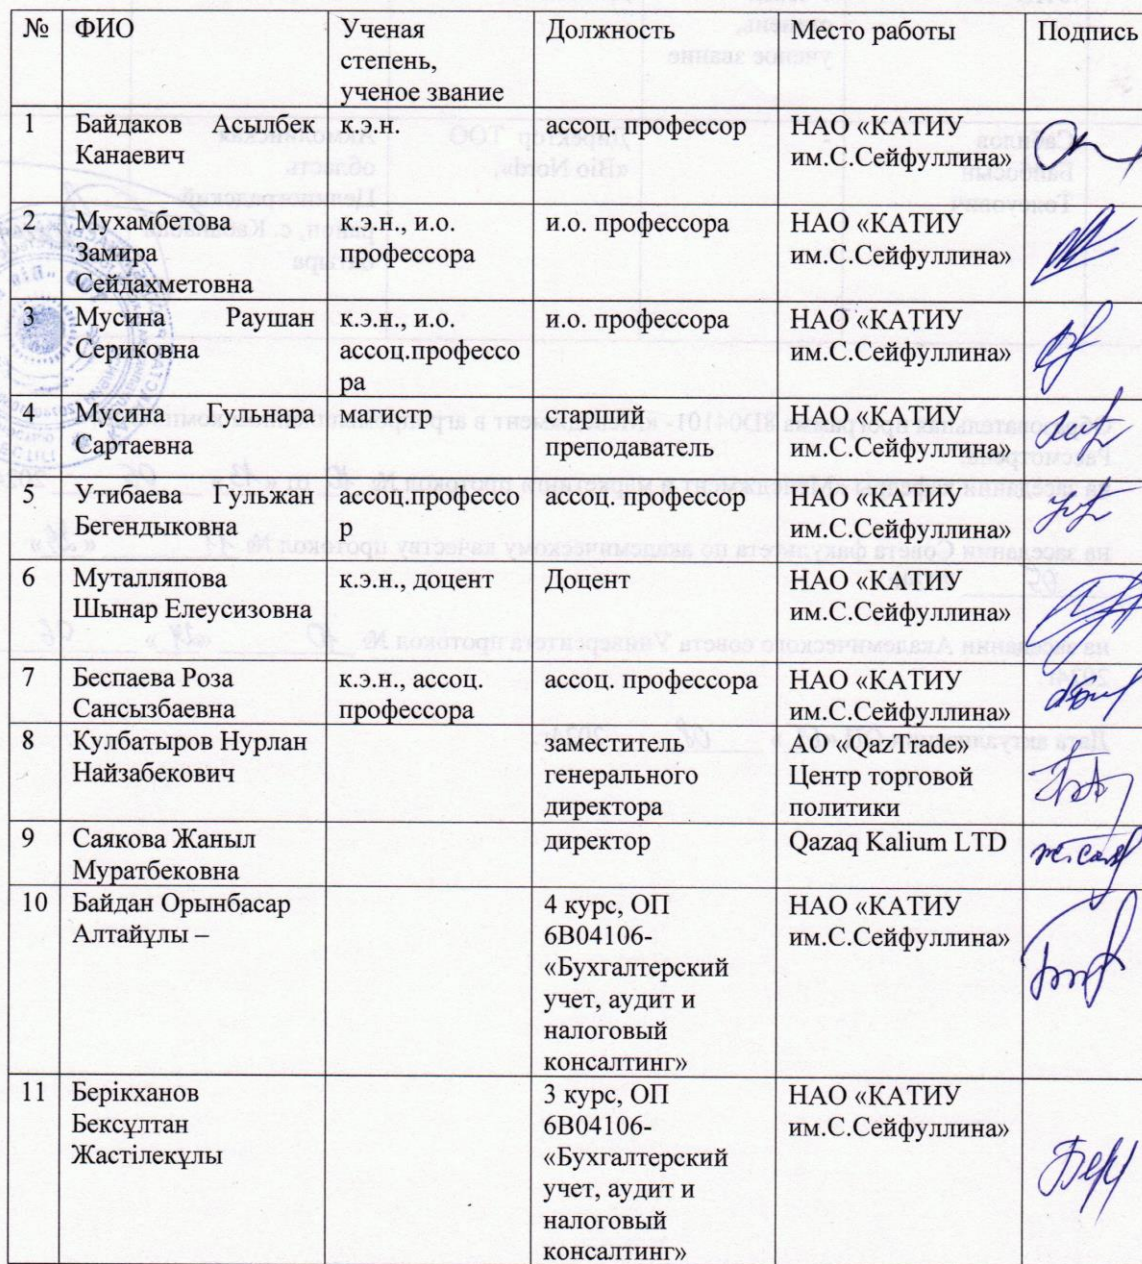 № ФИО Ученая степень, ученое звание Должность Место работы Подпись
1 Байдаков Асылбек Канаевич к.э.н. ассоц. профессор НАО «КАТИУ им.С.Сейфуллина»
2 Мухамбетова Замира Сейдахметовна к.э.н., и.о. профессора и.о. профессора НАО «КАТИУ им.С.Сейфуллина»
3 Мусина Раушан Сериковна к.э.н., и.о. ассоц.профессора и.о. профессора НАО «КАТИУ им.С.Сейфуллина»
4 Мусина Гульнара Сартаевна магистр старший преподаватель НАО «КАТИУ им.С.Сейфуллина»
5 Утибаева Гульжан Бегендыковна ассоц.профессор ассоц. профессор НАО «КАТИУ им.С.Сейфуллина»
6 Муталляпова Шынар Елеусизовна к.э.н., доцент Доцент НАО «КАТИУ им.С.Сейфуллина»
7 Беспаева Роза Сансызбаевна к.э.н., ассоц. профессора ассоц. профессора НАО «КАТИУ им.С.Сейфуллина»
8 Кулбатыров Нурлан Найзабекович заместитель генерального директора АО «QazTrade» Центр торговой политики
9 Саякова Жаныл Муратбековна директор Qazaq Kalium LTD
10 Байдан Орынбасар Алтайұлы – 4 курс, ОП 6В04106- «Бухгалтерский учет, аудит и налоговый консалтинг» НАО «КАТИУ им.С.Сейфуллина»
11 Берікханов Бексұлтан Жастілекұлы 3 курс, ОП 6В04106- «Бухгалтерский учет, аудит и налоговый консалтинг» НАО «КАТИУ им.С.Сейфуллина»